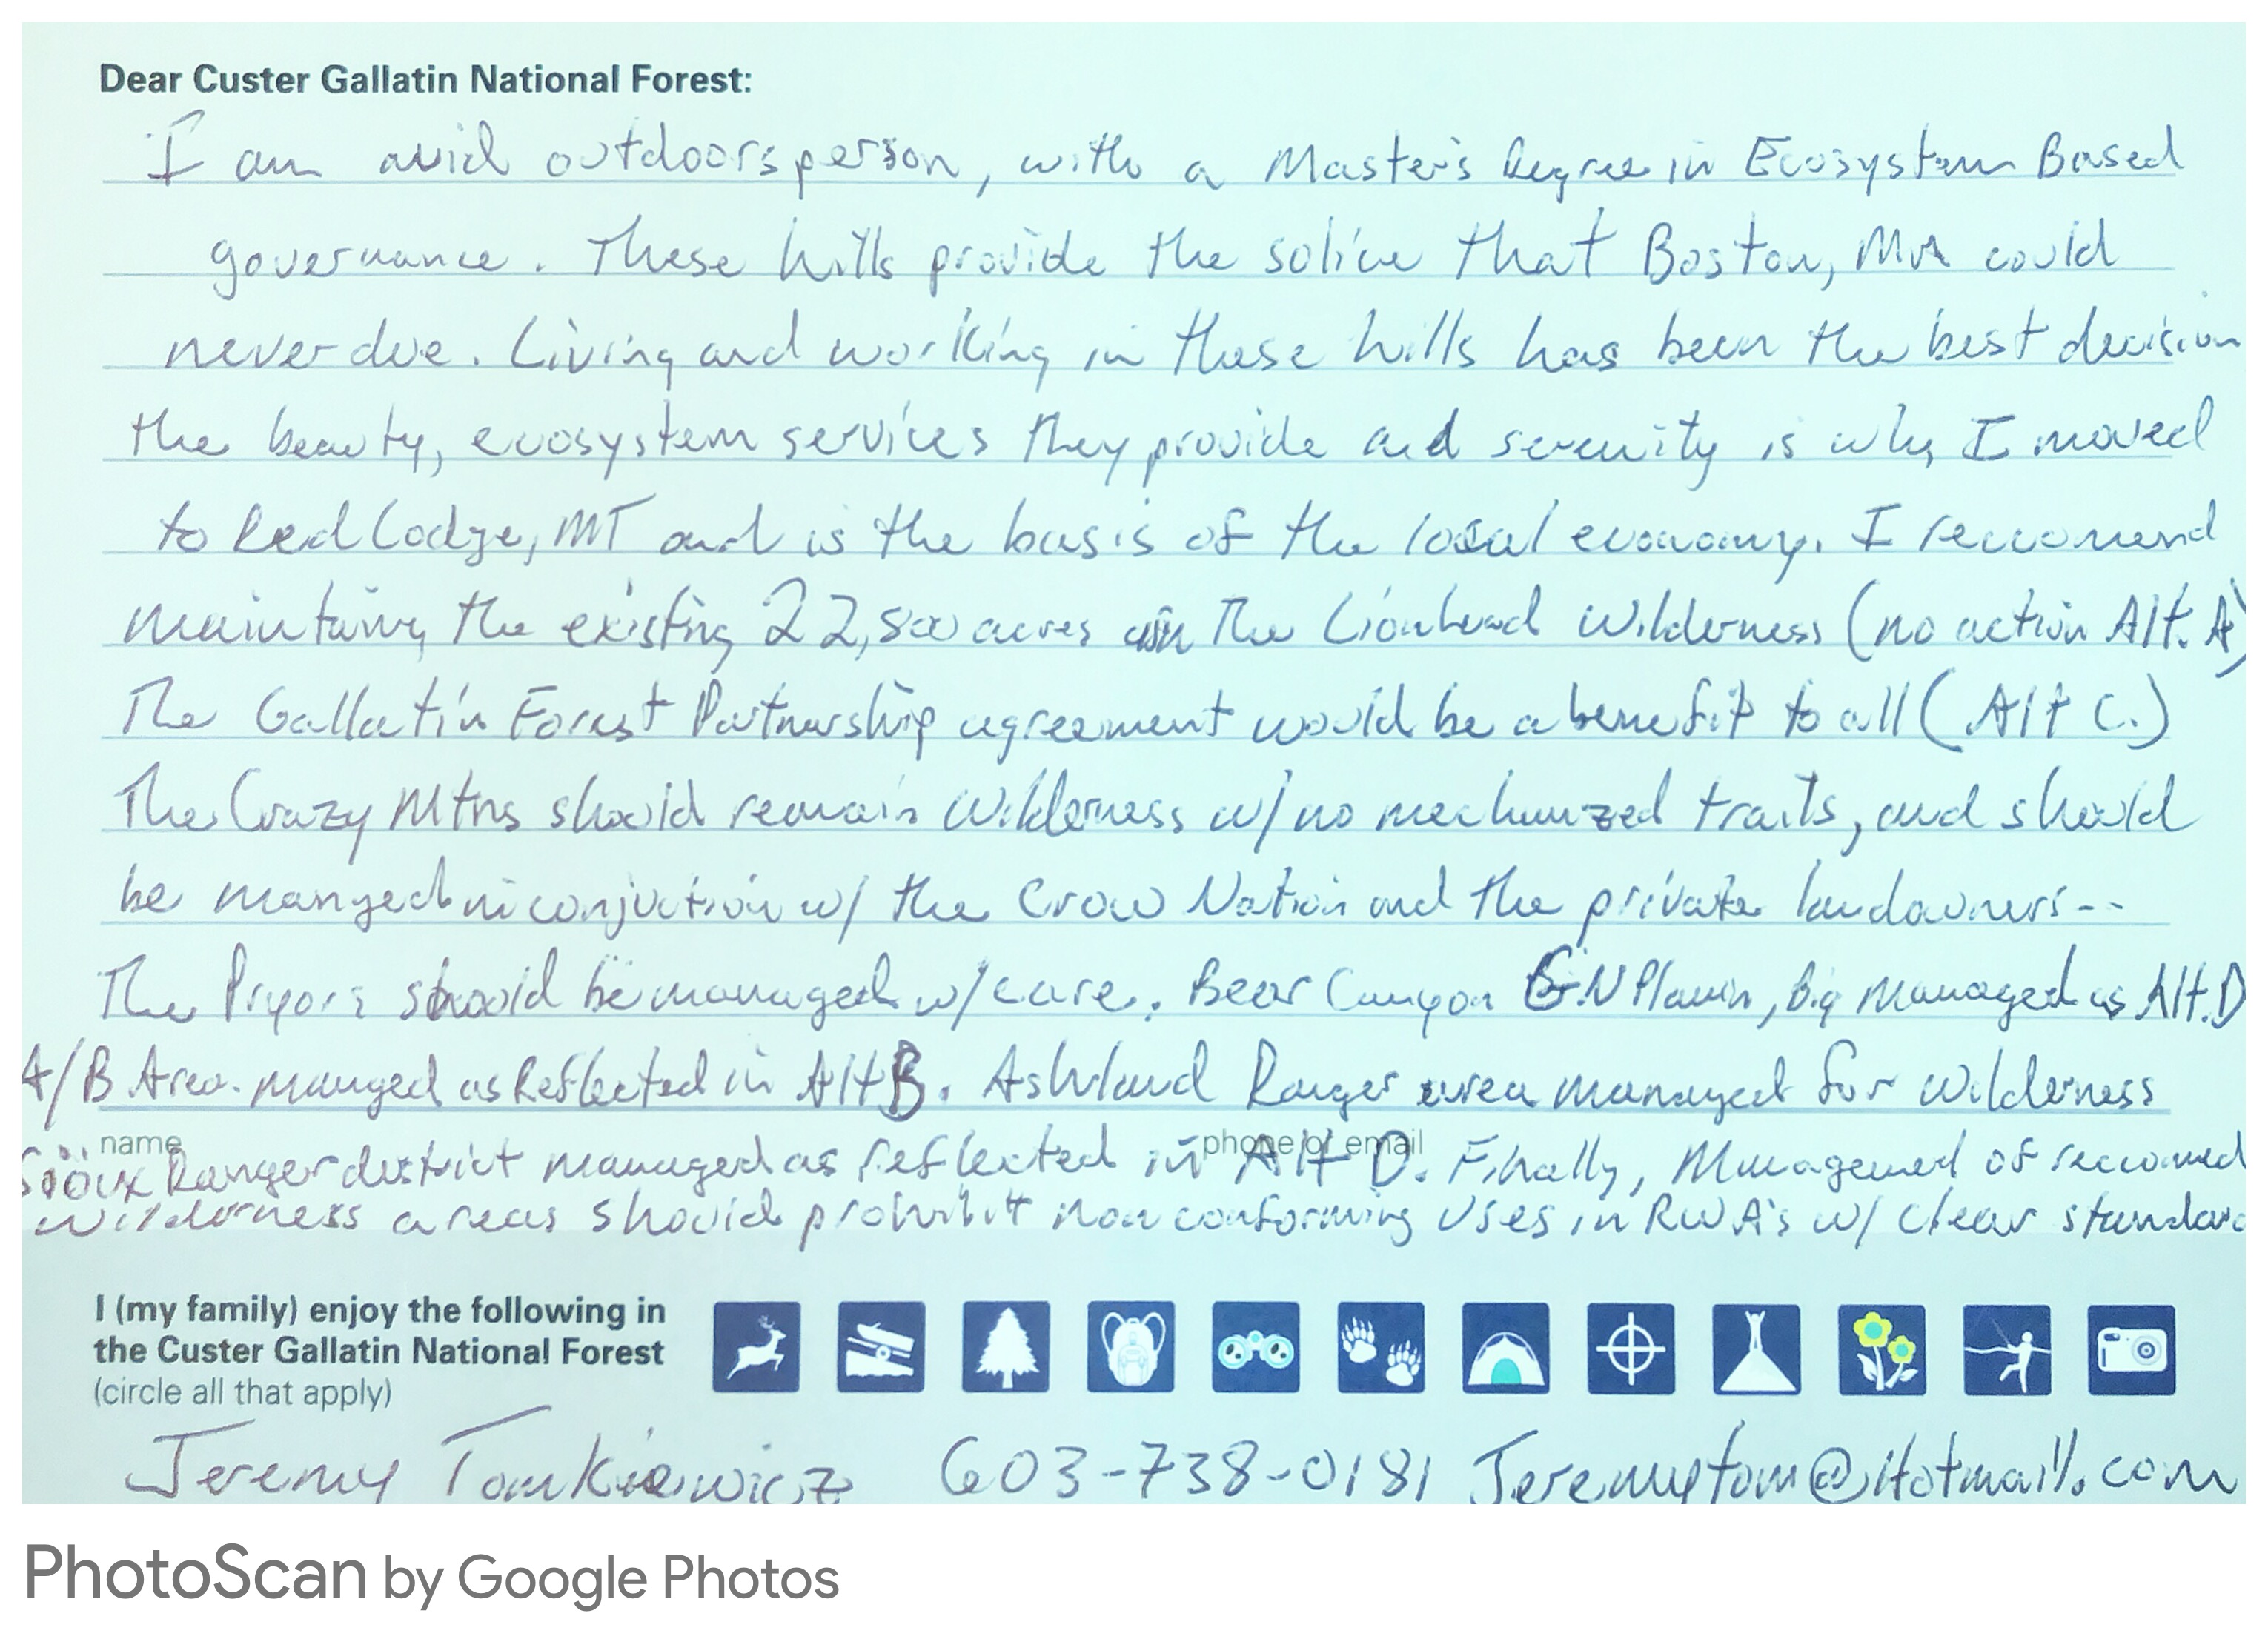 Dear Custer Gallatin National Forest:
I am avid outdoorsperson, with a Master's Degree in Ecosystem Based
governance. These hills provide the solice that Boston, MA could
never due. Living and working in these hills has been the best decision
the beauty, ecosystem services they provide and serenity is why I moved
to Red Lodge, MT and is the basis of the local economy. I reccomend
maintaing the existing 22,800 acres in the Lionhead Wilderness (no action Alt. A)
The Gallatin Forest Partnership agreement would be a benefit to all (Alt C.)
The Crazy Mtns should remain Wilderness w/ no mechanized traits, and should
be manged in conjuction w/ the Crow Nation and the private landowners--
The Pryors should be managed w/ care. Bear Canyon Big managed as Alt. D
A/B Area. manged as Reflected in Alt B. Ashland Ranger area managed for wilderness
name phone or email
Sioux Ranger district managed as reflected in Alt D. Finally, Managemed of reccomed
wilderness areas should prohibit non conforming Uses in RWA's w/ clear standard
I (my family) enjoy the following in
the Custer Gallatin National Forest
(circle all that apply)
Jeremy Tomkiewicz 603-738-0181 Jeremytom@Hotmail.com
PhotoScan by Google Photos